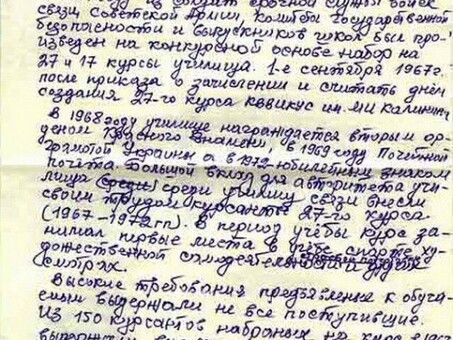 из солдат срочной службы войск
связи Советской Армии, Комитета Государственной
безопасности и выпускников школ был про-
изведен на конкурсной основе набор на
27 и 17 курсы училища. 1-е сентября 1967г.
после приказа о зачислении и считать днём
создания 27-го курса КВВИКУС им. МИ Калинина
В 1968 году училище награждается вторым ор-
деном Красного Знамени, в 1969 году Почётной
грамотой Украины а в 1972-юбилейным знаком
почёта. Большой вклад для авторитета учи-
лища среди училищ связи внесли
своим трудом курсанты 27-го курса
(1967-1972гг). В период учёбы курс за-
нимал первые места в учёбе, спорте, ху-
дожественной самодеятельности и других
смотрах.
Высокие требования предъявленные к обуча-
емым выдержали не все поступившие.
Из 150 курсантов набранных на курс в 1967